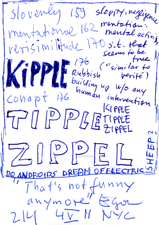 slovenly 159
mentational 162
mentation:
mental acting,
verisimilitude 170
s.t. that
seem to be
true
("similar to
verité")
KIPPLE
176
rubbish
building up w/o any
human intervention
conapt 176
KIPPLE
TIPPLE
ZIPPEL
TIPPLE
ZIPPEL
DO ANDROIDS DREAM OF ELECTRIC
SHEEP?
"That's not funny
anymore"
2/4 4 V II NYC